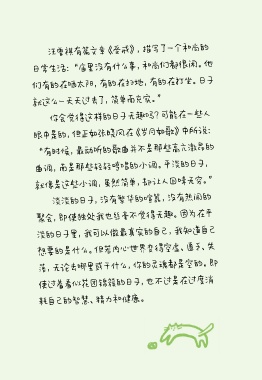 汪曾祺有篇文章《受戒》，描写了一个和尚的
日常生活：“庙里没有什么事，和尚们都很闲。他
们有的在晒太阳，有的在扫地，有的在打坐。日子
就这么一天天过去了，简单而充实。”
你会觉得这样的日子无趣吗？可能在一些人
眼中是的，但正如张晓风在《岁月如歌》中所说：
“有时候，最动听的歌曲并不是那些高亢激昂的
曲调，而是那些轻轻吟唱的小调。平淡的日子，
就像是这些小调，虽然简单，却让人回味无穷。”
淡淡的日子，没有繁华的喧嚣，没有热闹的
聚会，即使独处我也丝毫不觉得无趣。因为在平
淡的日子里，我可以做最真实的自己，我知道自己
想要的是什么。但若内心世界变得空虚、匮乏、失
落，无论去哪里或干什么，你的灵魂都是空的。即
使过着看似花团锦簇的日子，也不过是在过度消
耗自己的智慧、精力和健康。